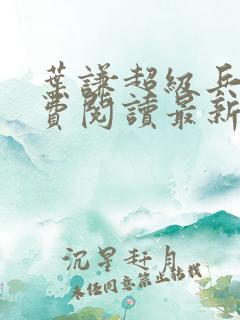 葉謙超級兵
費閱讀最新
沉星赶月
未经同意禁止转载